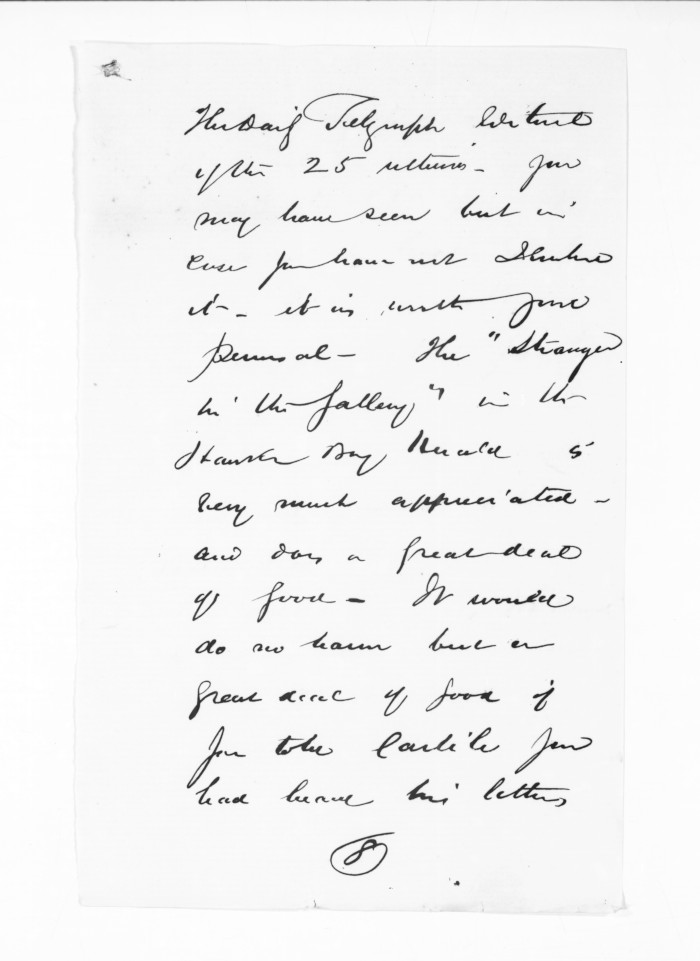 The Daily Telegraph
of the 25 - you
may have seen but in
case you have not I enclose
it - it is worth your
perusal - The "Stranger
in the Gallery" in the
Hawkes Bay Herald is
very much appreciated -
and does a great deal
of good - It would
do no harm but a
great deal of good if
you told Carlile you
had heard his letters
(8)